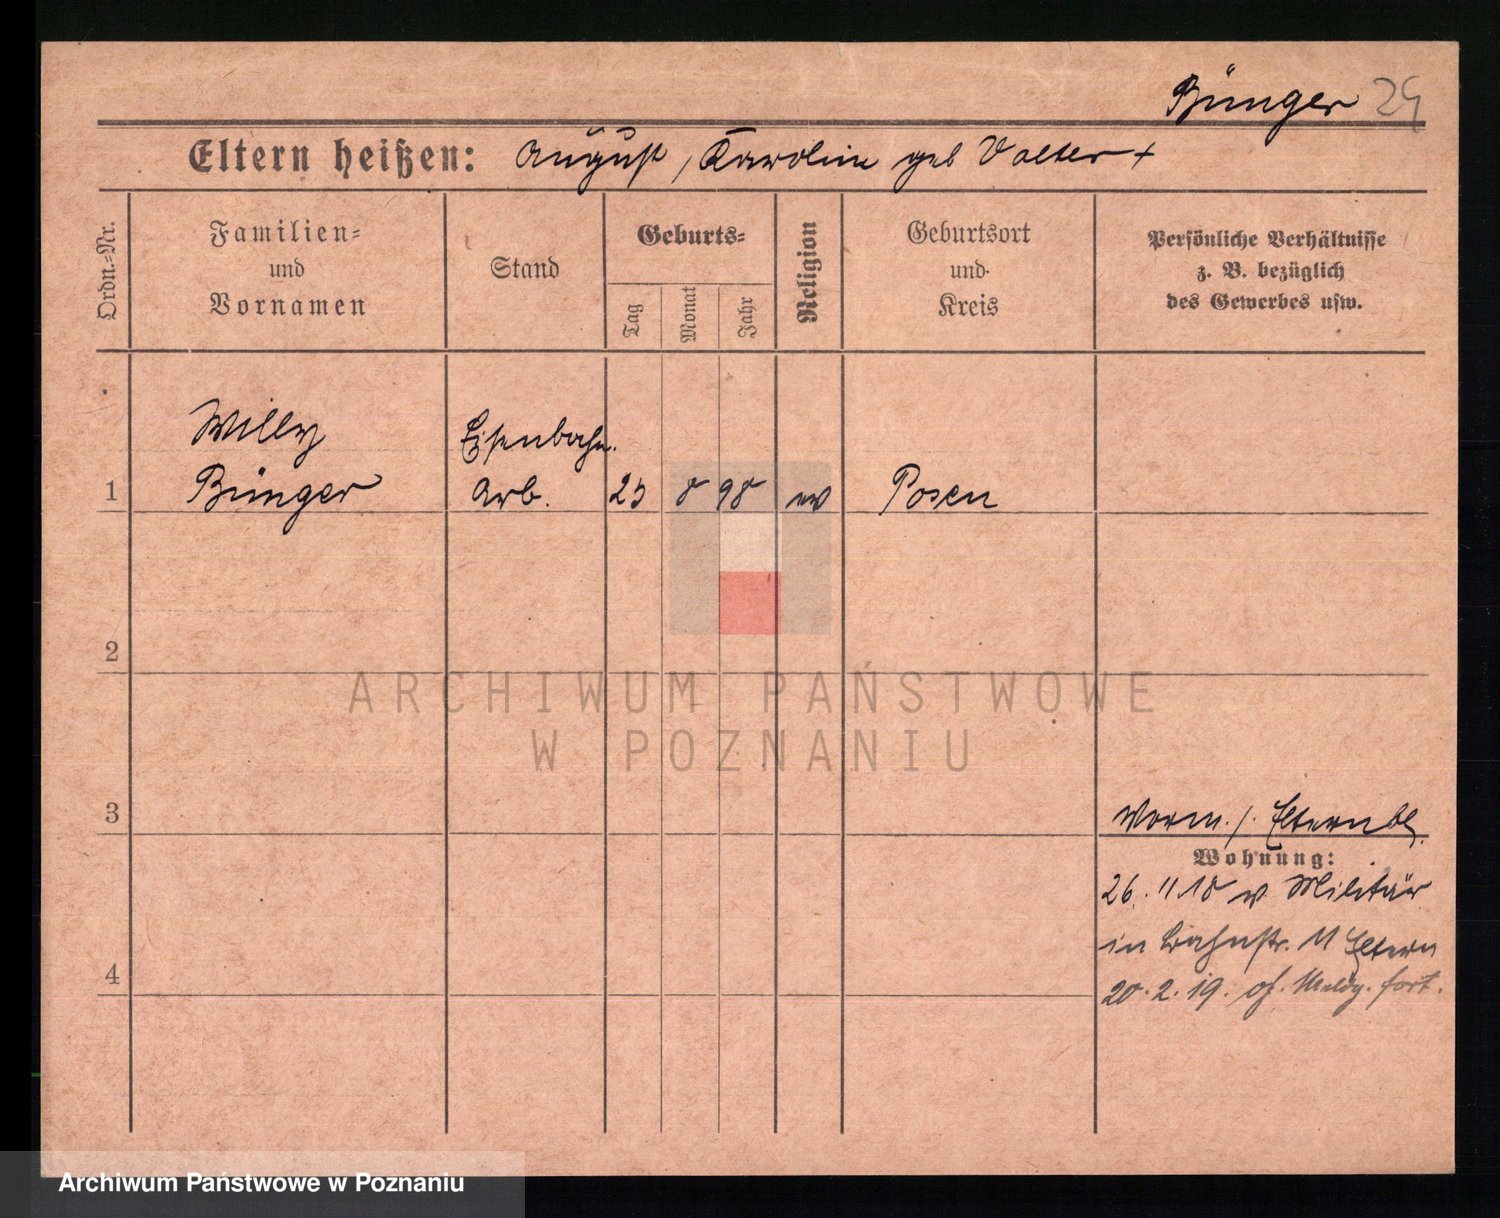 Bünger 29
Eltern heißen: August, Karoline geb Valter +
Ordn.-Nr.
Familien-
und
Vornamen
Stand
Geburts-
Tag
Monat
Jahr
Religion
Geburtsort
und
Kreis
Persönliche Verhältnisse
z. B. bezüglich
des Gewerbes usw.
Willy
Bünger
Eisenbahn.
Arb.
1
23 8 98 ev Posen
2
ARCHIWUM PAŃSTWOWE
W POZNANIU
3
Vorm. /. Elternbl.
Wohnung:
26. 11 18 v. Militär
in Bahnstr. 11 Eltern
4
20. 2. 19. of. Meldg. fort.
Archiwum Państwowe w Poznaniu